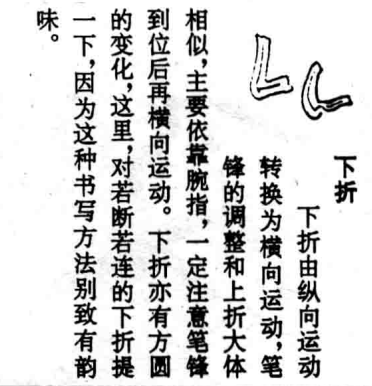 下折
下折由纵向运动
转换为横向运动，笔
锋的调整和上折大体
相似，主要依靠腕指，一定注意笔锋
到位后再横向运动。下折亦有方圆
的变化，这里，对若断若连的下折提
一下，因为这种书写方法别致有韵
味。